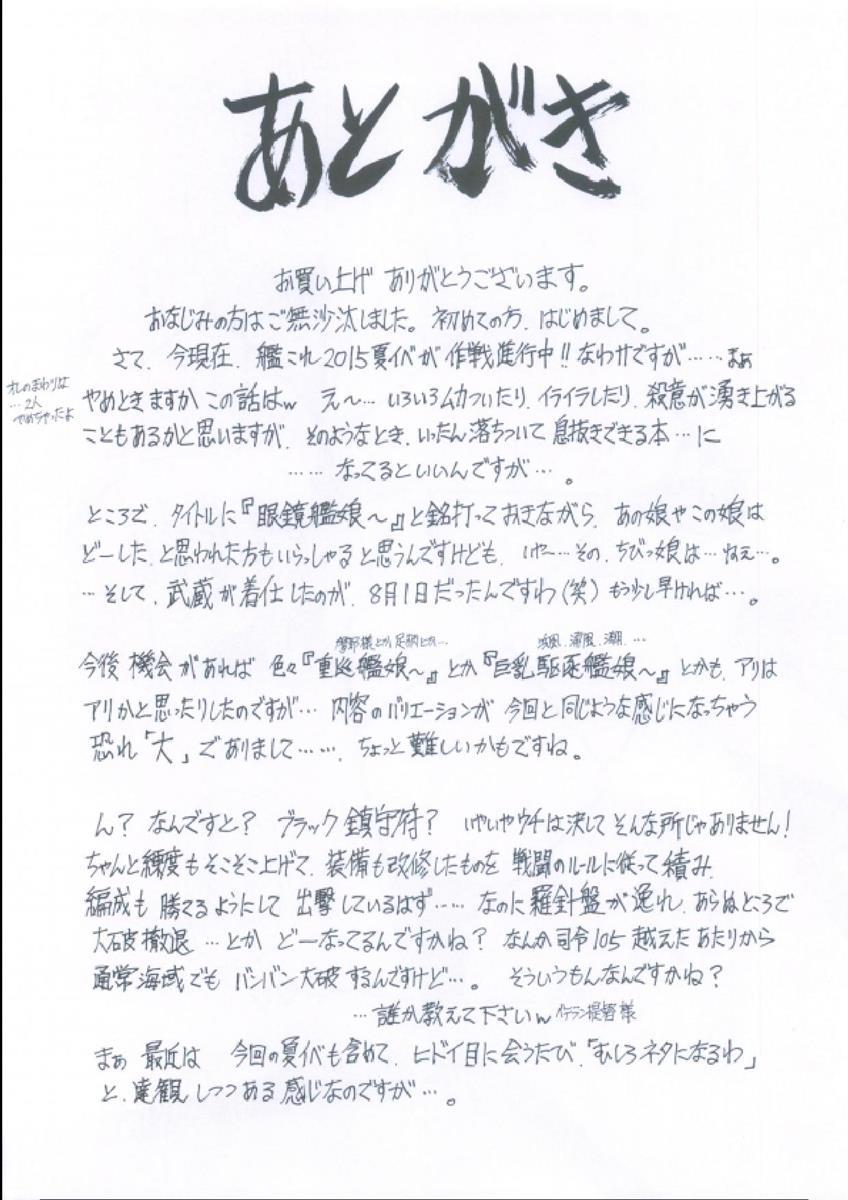 あとがき
お買い上げ ありがとうございます。
おなじみの方はご無沙汰しました。初めての方、はじめまして。
さて、今現在、艦これ2015夏イベが作戦進行中!! なわけですが……まぁ
やめときますか この話はw え〜… いろいろムカついたり、イライラしたり、殺意が湧き上がる
こともあるかと思いますが、そのようなとき、いったん落ちついて息抜きできる本…に
……なってるといいんですが…。
オレのまわりは
…2人
やめちゃったよ
ところで、タイトルに『眼鏡艦娘〜』と銘打っておきながら、あの娘やこの娘は
どーした、と思われた方もいらっしゃると思うんですけども、いやー…その、ちびっ娘は…ねぇ…。
…そして、武蔵が着任したのが、8月1日だったんですわ(笑) もう少し早ければ…。
摩耶様とか足柄とか…
浜風、潮…
今後 機会があれば 色々『重巡艦娘〜』とか『巨乳駆逐艦娘〜』とかも、アリは
アリかと思ったりしたのですが… 内容のバリエーションが 今回と同じような感じになっちゃう
恐れ「大」でありまして……、ちょっと難しいかもですね。
ん? なんですと? ブラック鎮守府? いやいやウチは決してそんな所じゃありません!
ちゃんと練度もそこそこ上げて、装備も改修したものを 戦闘のルールに従って積み、
編成も 勝てるようにして 出撃しているはず…… なのに羅針盤が逸れ、あらぬところで
大破撤退 …とか どーなってるんですかね? なんか司令105越えたあたりから
通常海域でも バンバン大破するんですけど…。 そういうもんなんですかね?
…誰か教えて下さいw イケテラン提督様
まぁ 最近は 今回の夏イベも含めて、ヒドイ目に会うたび、「むしろネタになるわ」
と、達観しつつある感じなのですが…。